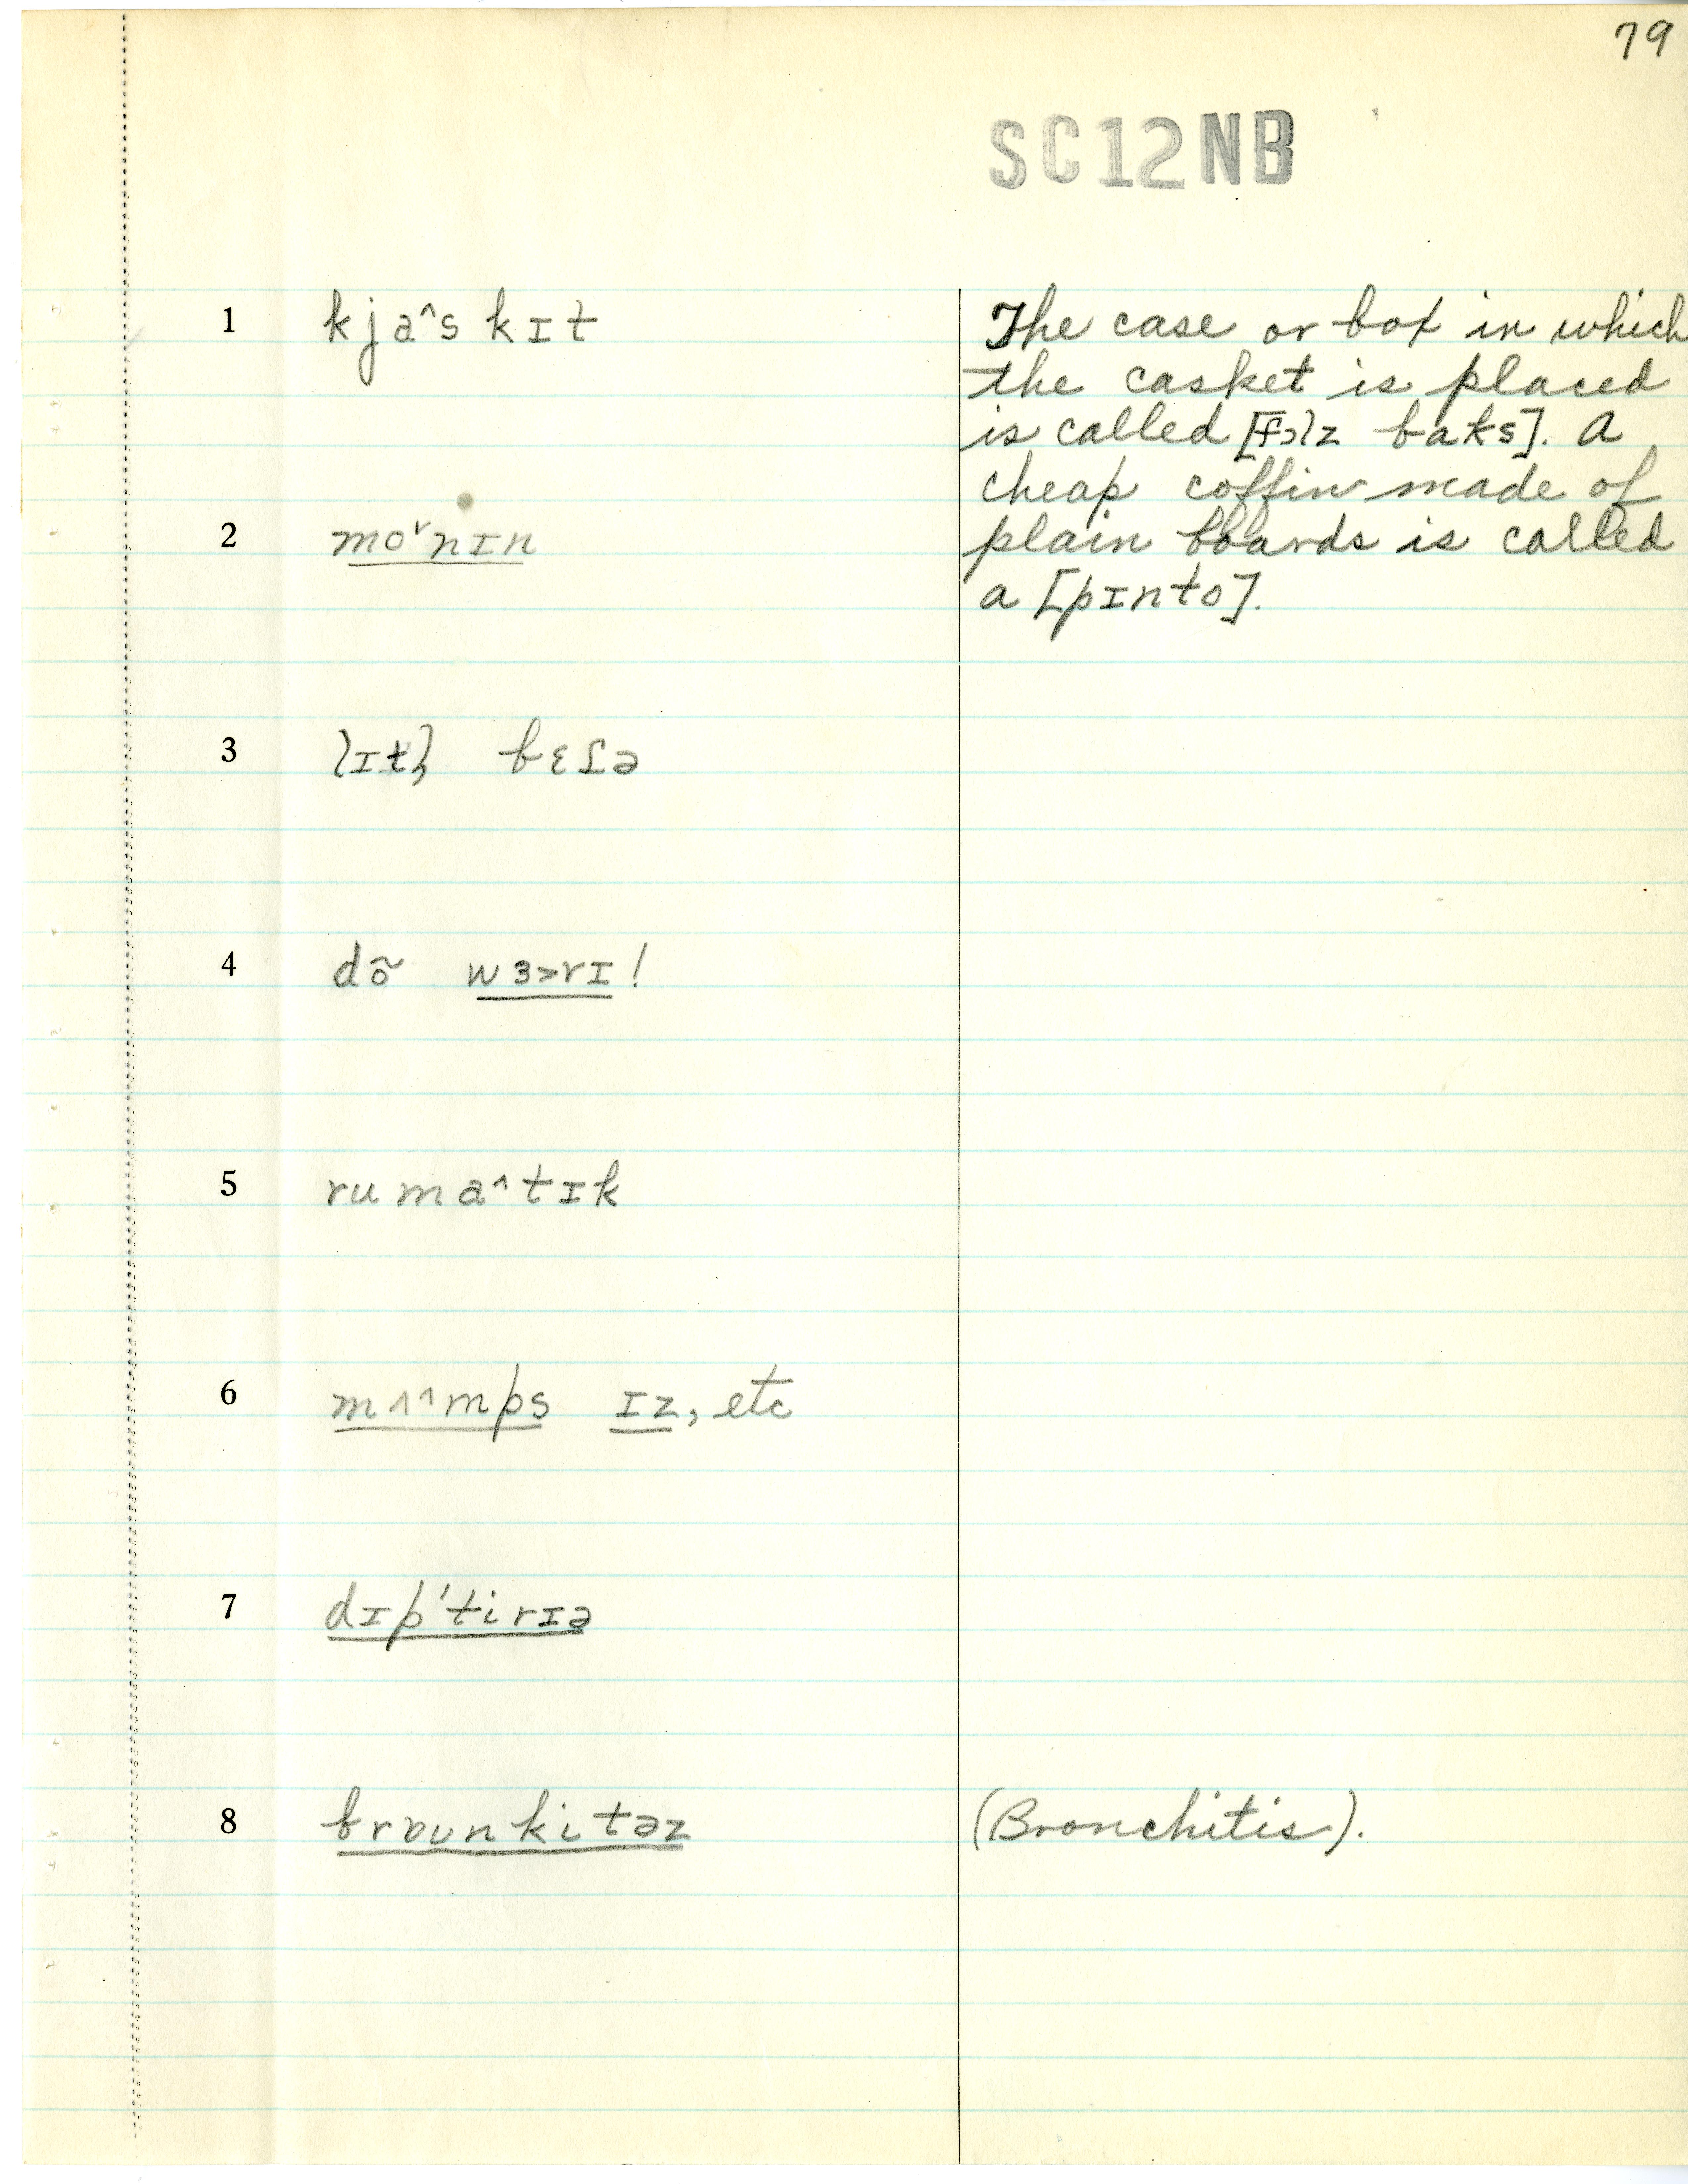 79
SC12NB
1 kja^skɪt
The case or box in which
the casket is placed
is called [fɔlz baks]. A
cheap coffin made of
2 mo˅nɪn
plain boards is called
a [pɪnto].
3 lɪtl̩ bɛɾə
4 dõ wɜ>rɪ!
5 ruma^tɪk
6 mʌ^mps ɪz, etc
7 dɪp'tirɪə
8 brɒunkitəz (Bronchitis).